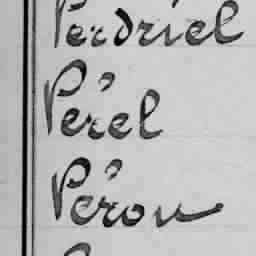 Perdriel
Pérel
Péron